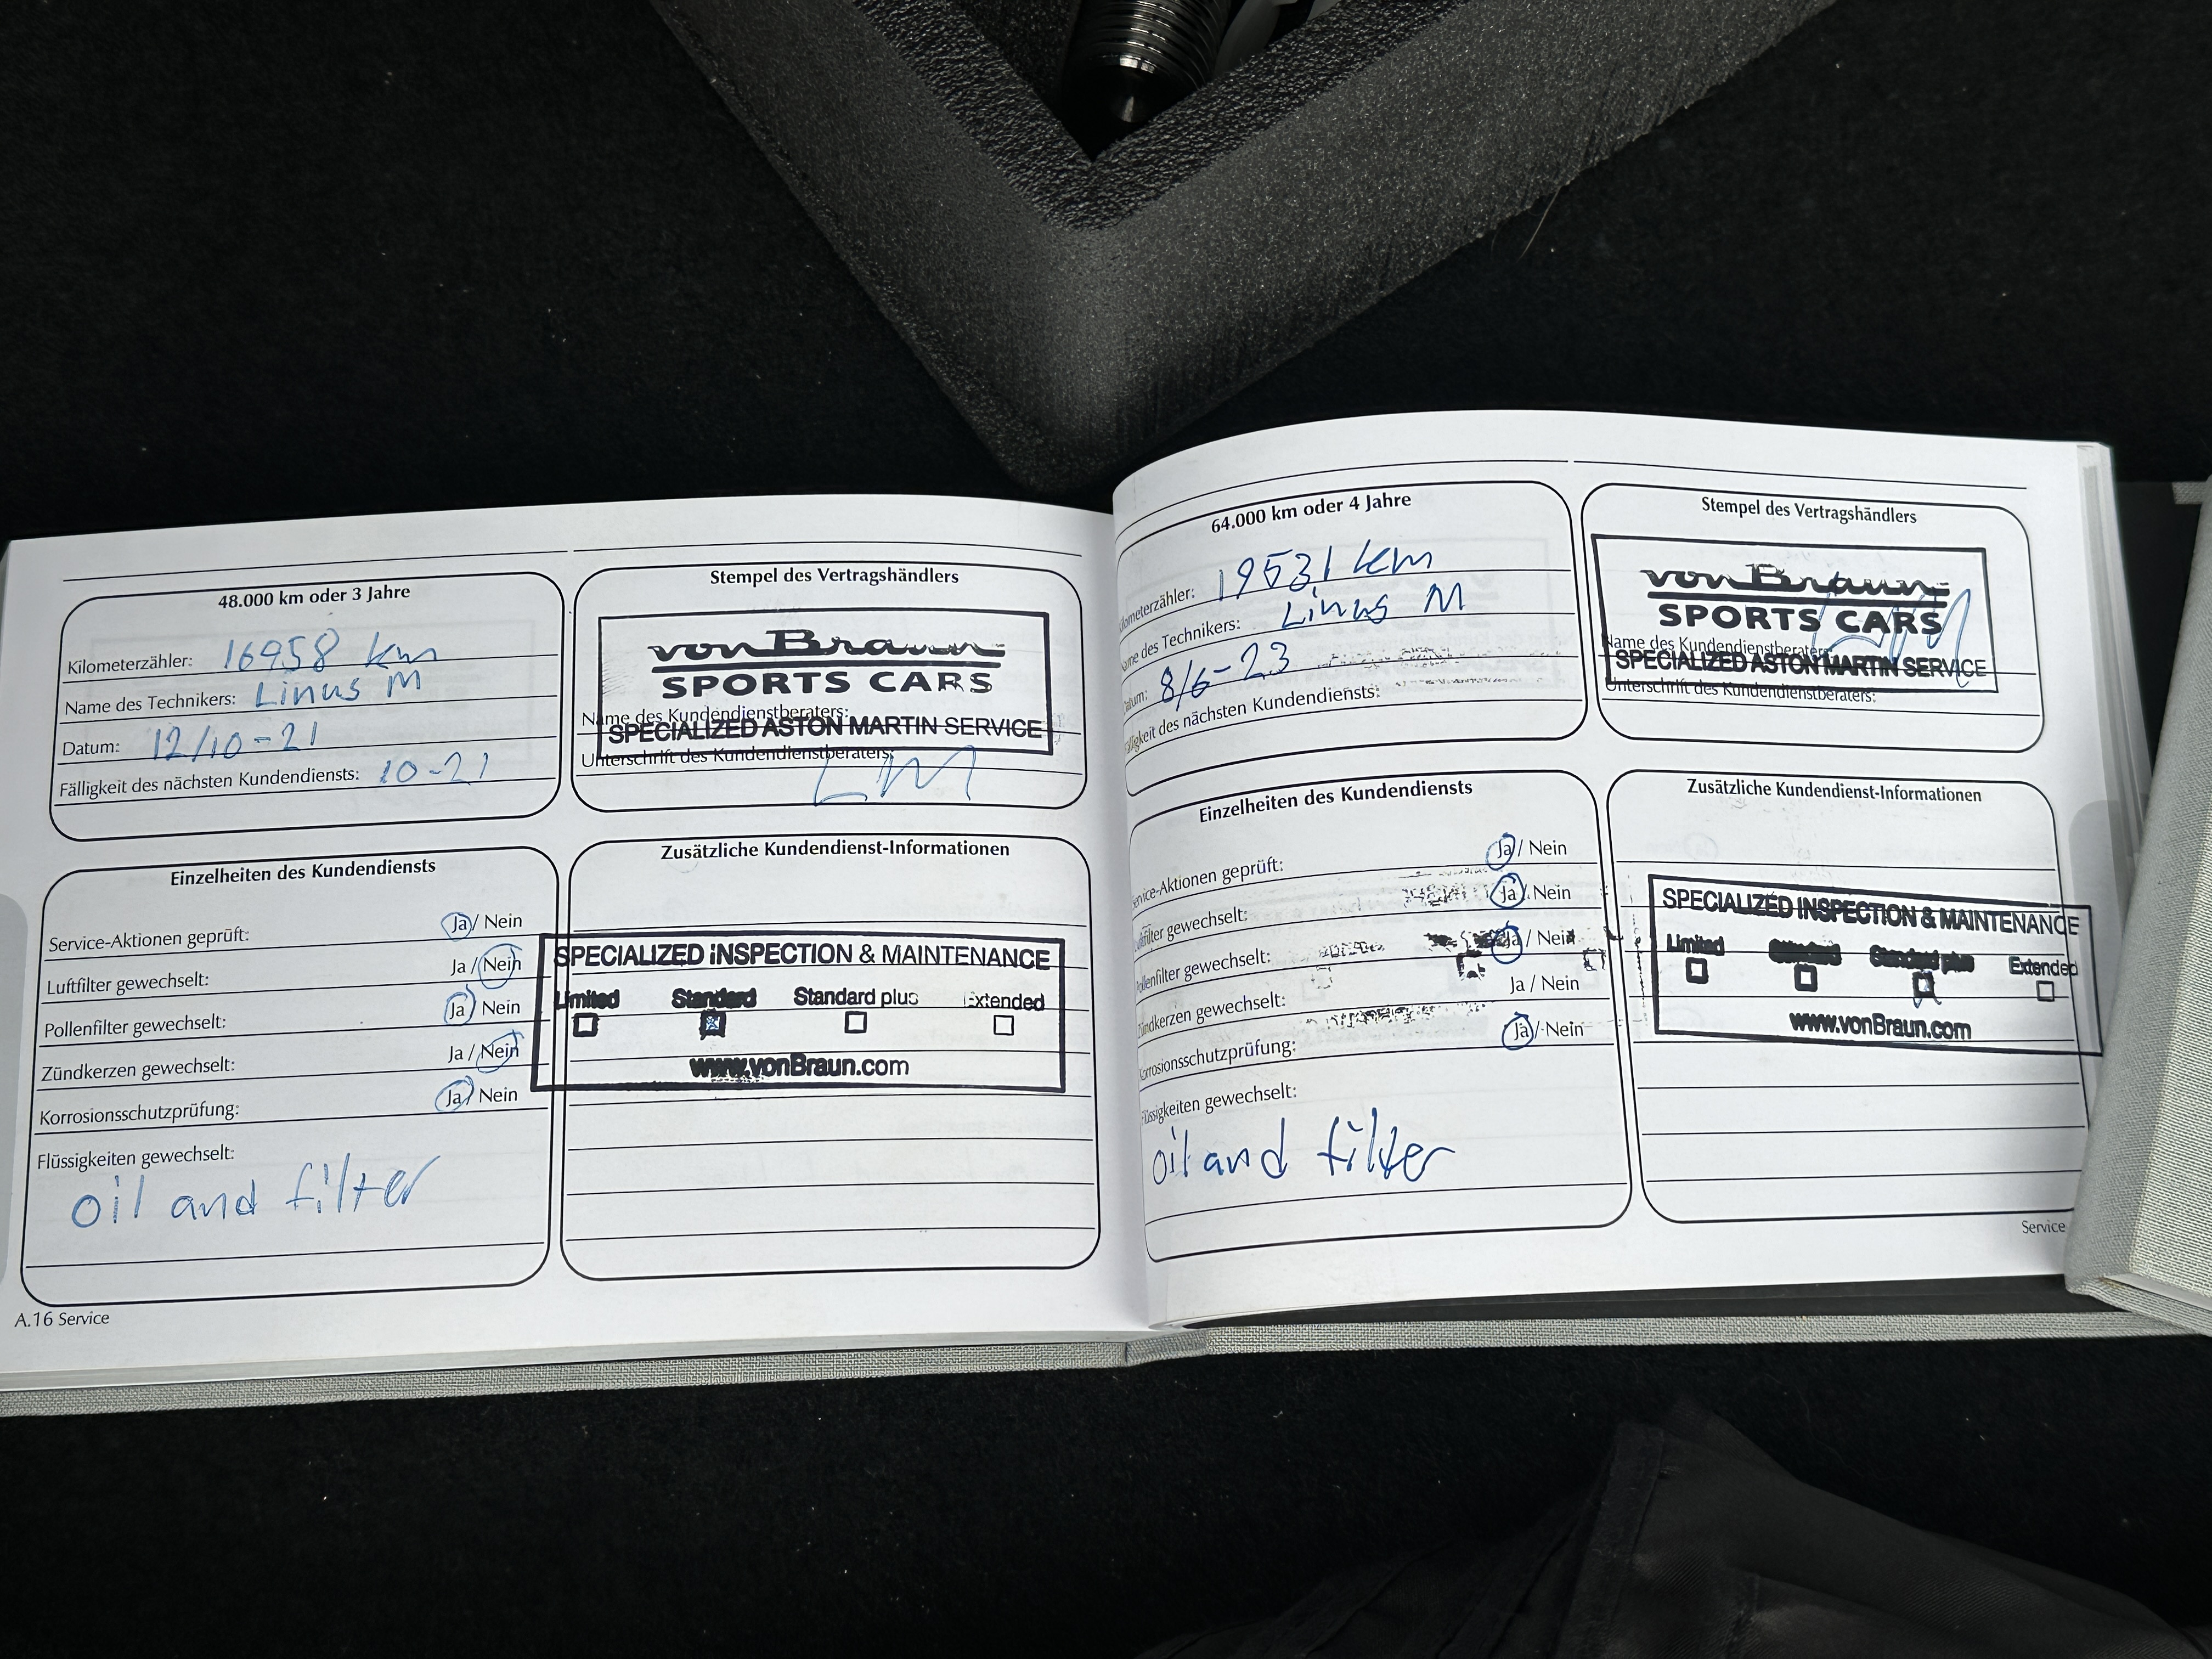 48.000 km oder 3 Jahre
Kilometerzähler: 16958 km
Name des Technikers: Linus M
Datum: 12/10-21
Fälligkeit des nächsten Kundendiensts: 10-21
Stempel des Vertragshändlers
von Braun
SPORTS CARS
Name des Kundendienstberaters:
SPECIALIZED ASTON MARTIN SERVICE
Unterschrift des Kundendienstberaters:
LM
Einzelheiten des Kundendiensts
Service-Aktionen geprüft: Ja / Nein
Luftfilter gewechselt: Ja / Nein
Pollenfilter gewechselt: Ja / Nein
Zündkerzen gewechselt: Ja / Nein
Korrosionsschutzprüfung: Ja / Nein
Flüssigkeiten gewechselt:
oil and filter
Zusätzliche Kundendienst-Informationen
SPECIALIZED INSPECTION & MAINTENANCE
Limited Standard Standard plus Extended
www.vonBraun.com
A.16 Service
64.000 km oder 4 Jahre
ilometerzähler: 19531 km
me des Technikers: Linus M
atum: 8/6-23
lligkeit des nächsten Kundendiensts:
Stempel des Vertragshändlers
von Braun
SPORTS CARS
Name des Kundendienstberaters:
SPECIALIZED ASTON MARTIN SERVICE
Unterschrift des Kundendienstberaters:
LM
Einzelheiten des Kundendiensts
ervice-Aktionen geprüft: Ja / Nein
ftfilter gewechselt: Ja / Nein
ollenfilter gewechselt: Ja / Nein
ündkerzen gewechselt: Ja / Nein
orrosionsschutzprüfung: Ja / Nein
lüssigkeiten gewechselt:
oil and filter
Zusätzliche Kundendienst-Informationen
SPECIALIZED INSPECTION & MAINTENANCE
Limited Standard Standard plus Extended
www.vonBraun.com
Service